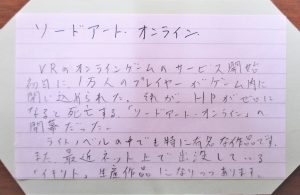 ソードアート・オンライン
VRのオンラインゲームのサービス開始
初日に、1万人のプレイヤーがゲーム内に
閉じ込められた。それが、HPがゼロに
なると死亡する「ソードアート・オンライン」の
開幕だった。
ライトノベルの中でも特に有名な作品です。
また、最近ネット上で出没している
「イキリト」生産作品になりつつあります。